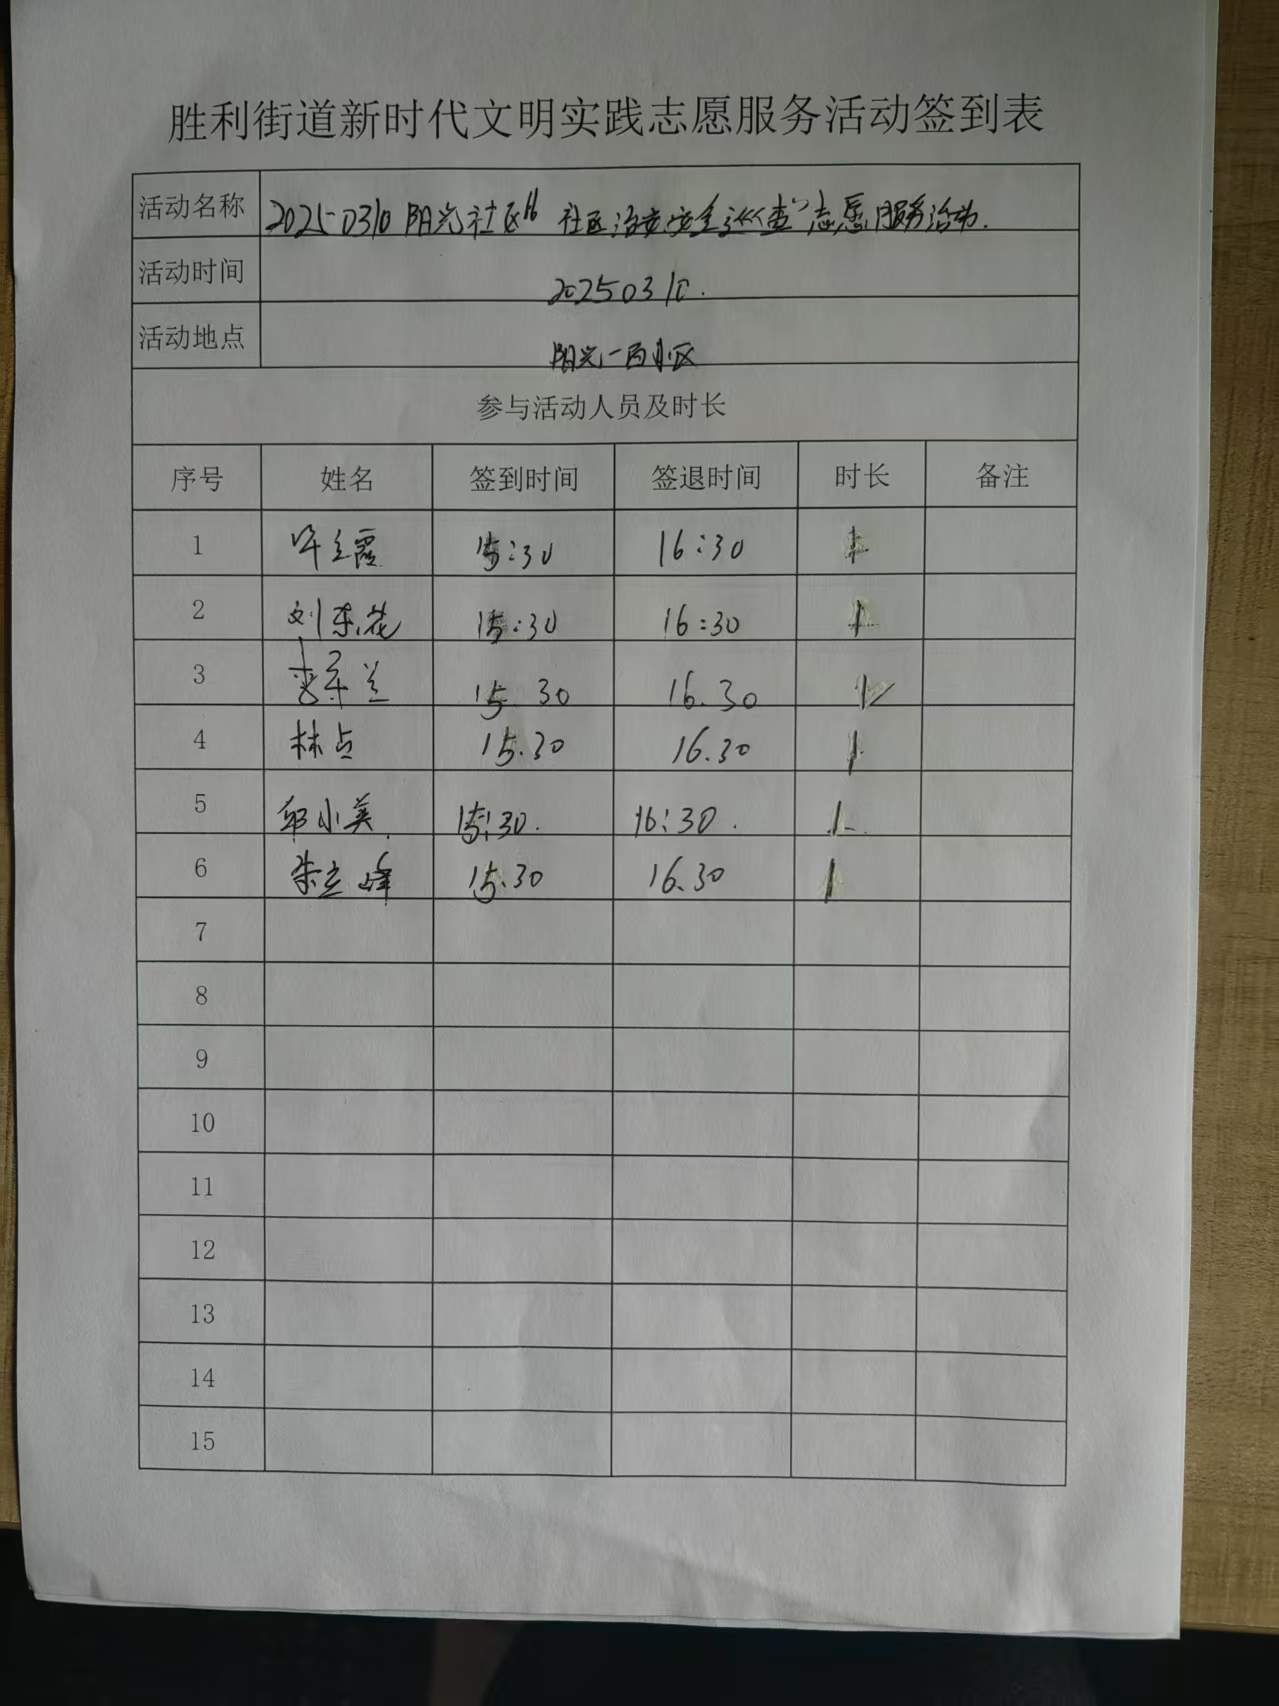 胜利街道新时代文明实践志愿服务活动签到表
活动名称 20250310 阳光社区"社区治安安全巡查"志愿服务活动.
活动时间 20250310.
活动地点 阳光一西小区
参与活动人员及时长
序号 姓名 签到时间 签退时间 时长 备注
1 许立霞 15:30 16:30 1
2 刘东花 15:30 16:30 1
3 兰 15.30 16.30 1
4 林占 15.30 16.30 1
5 邱小英 15:30. 16:30. 1
6 朱立峰 15.30 16.30 1
7
8
9
10
11
12
13
14
15